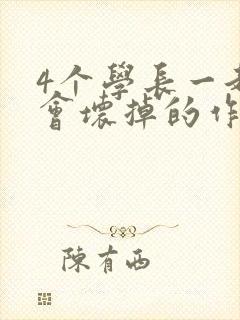 4个學長一
會壞掉的作
陳有西